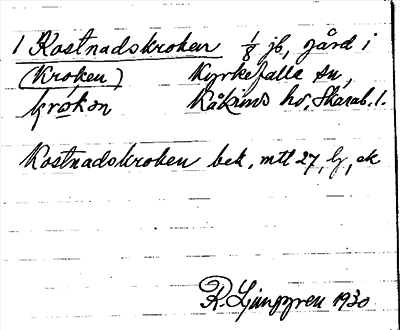 1 Kostnadskroken 1/8 jb, gård i
(Kroken) Kyrkefalla sn,
krokon Kåkinds hd, Skarab. l.
Kostnadskroken bek. mtl 27, lj, ek
R. Ljunggren 1930